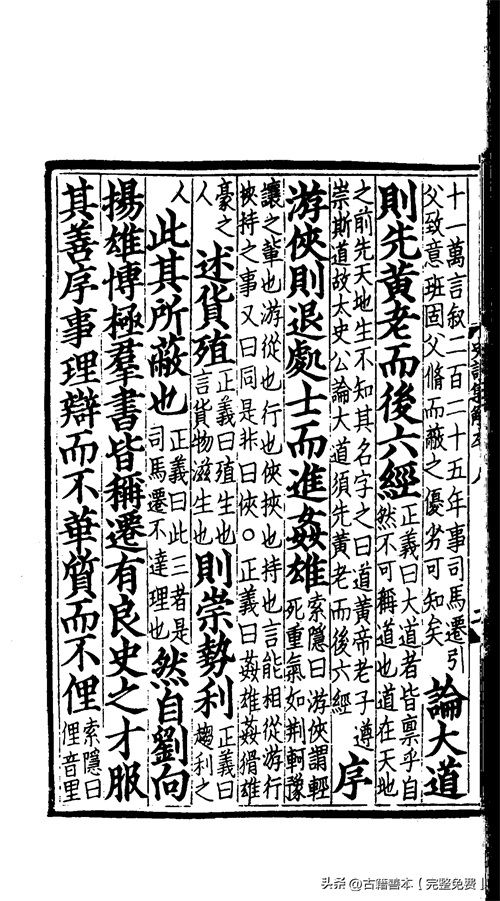 十一萬言敘二百二十五年事司馬遷引
父致意班固父脩而蔽之優劣可知矣
論大道
則先黃老而後六經
正義曰大道者皆禀乎自
然不可稱道也道在天地
之前先天地生不知其名字之曰道黃帝老子遵
崇斯道故太史公論大道須先黃老而後六經
序
游俠則退處士而進姦雄
索隱曰游俠謂輕
死重氣如荆軻豫
讓之輩也游從也行也俠挾也持也言能相從游行
俠持之事又曰同是非曰俠○正義曰姦雄姦猾雄
豪之
人
述貨殖
正義曰殖生也
言貨物滋生也
則崇勢利
正義曰
趨利之
人
此其所蔽也
正義曰此三者是
司馬遷不達理也
然自劉向
揚雄博極羣書皆稱遷有良史之才服
其善序事理辯而不華質而不俚
索隱曰
俚音里
头条 @古籍善本【完整免费】